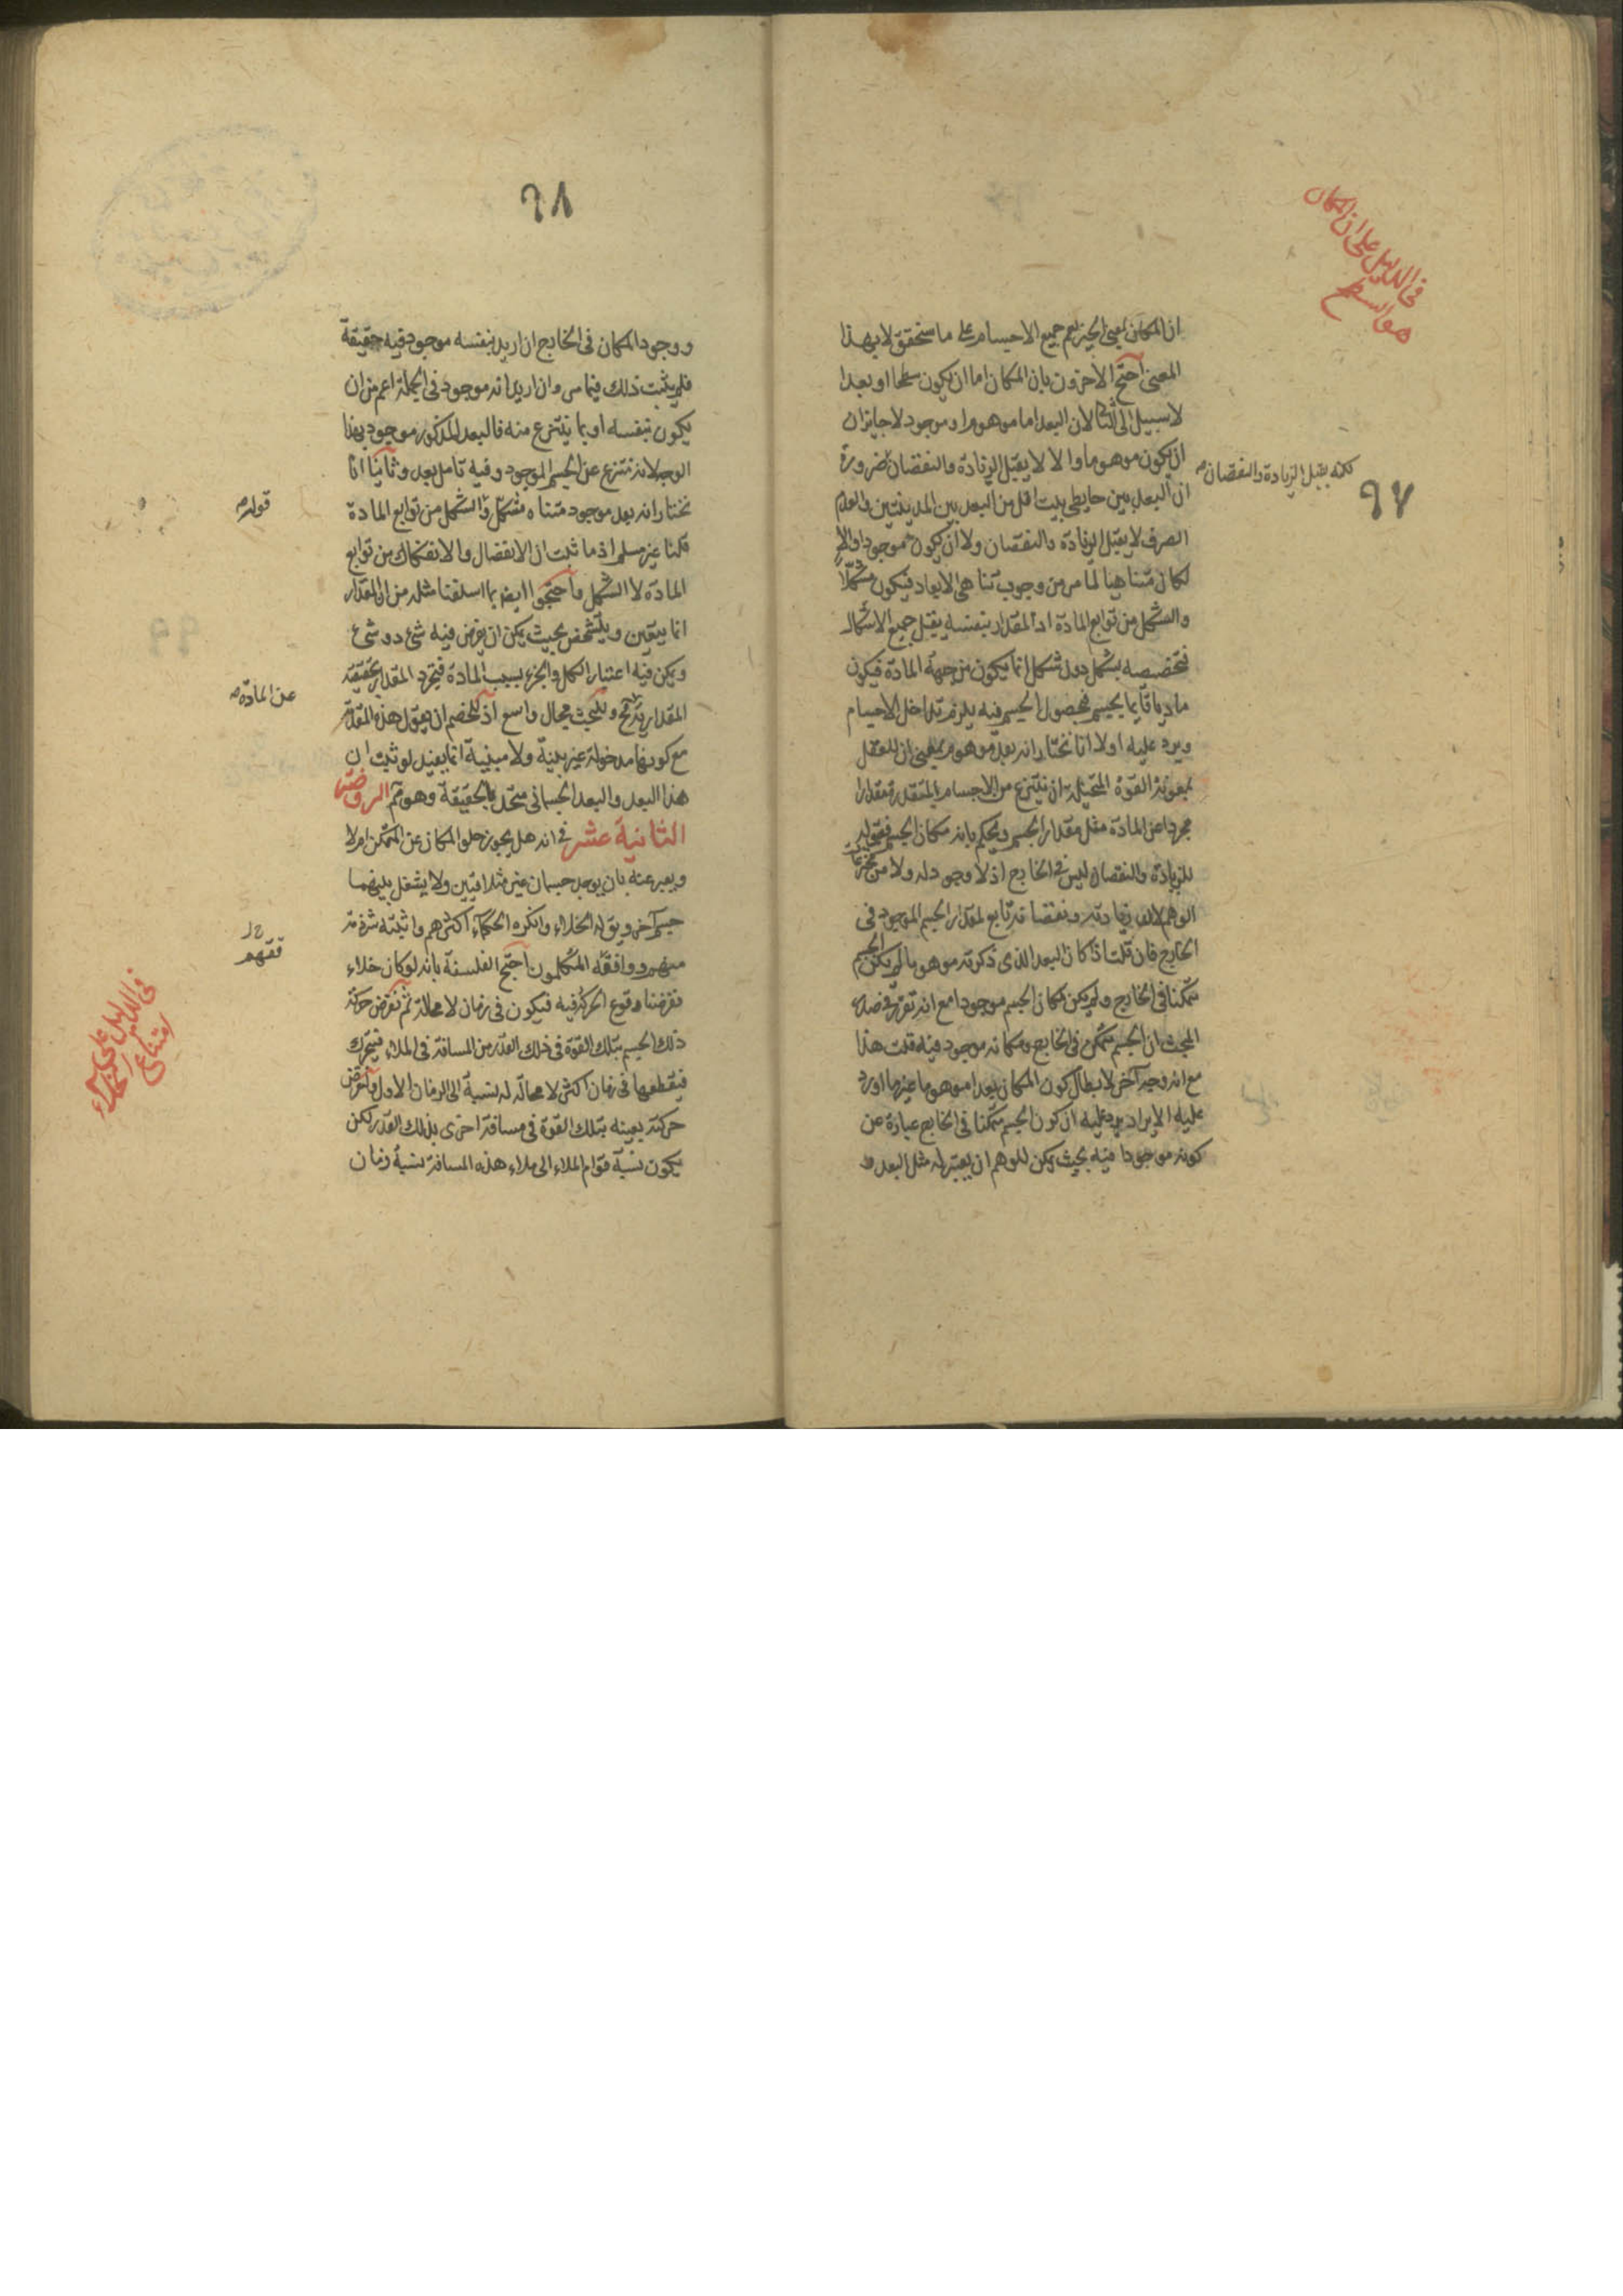 في الدليل على ان المكان
هو السطح
٩٧
ان المكان بمعنى الحيز يعم جميع الاجسام على ما سنحقق لا بهذا
المعنى احتج الاخرون بان المكان اما ان يكون سطحا او بعدا
لا سبيل الى الثاني لان البعد اما موهوم او موجود لا جايز ان
ان يكون موهوما والا لا يقبل الزيادة والنقصان ضرورة
لكنه يقبل الزيادة والنقصان
ان البعد بين حايطي بيت اقل من البعد بين المدينتين والعدم
الصرف لا يقبل الزيادة والنقصان ولا ان يكون موجودا والا
لكان متناهيا لما مر من وجوب تناهى الابعاد فيكون مشكلا
والشكل من توابع المادة اذ المقدار بنفسه يقبل جميع الاشكال
فتخصصه بشكل دون شكل انما يكون من جهة المادة فيكون
ماديا قايما بجسم فحصول الجسم فيه يلزم تداخل الاجسام
ويرد عليه اولا انا نختار انه بعد موهوم بمعنى ان للعقل
بمعونة القوة المتخيلة ان ينتزع من الاجسام المتقدرة مقدارا
مجردا عن المادة مثل مقدار الجسم ويحكم بانه مكان الجسم فقبوله
للزيادة والنقصان ليس في الخارج اذ لا وجود له ولا من مخترعات
الوهم لان زيادته ونقصانه تابع لمقدار الجسم الموجود في
الخارج فان قلت اذا كان البعد الذى ذكرته موهوما لم يكن الجسم
متمكنا في الخارج ولم يكن مكان الجسم موجودا مع انه تقرر في صدر
المبحث ان الجسم متمكن في الخارج ومكانه موجود فيه قلت هذا
مع انه وجه آخر لابطال كون المكان بعدا موهوما غير ما اورد
عليه الايراد يرد عليه ان كون الجسم متمكنا في الخارج عبارة عن
كونه موجودا فيه بحيث يمكن للوهم ان يعتبر له مثل البعد
٩٨
ووجود المكان في الخارج ان اريد بنفسه موجود فيه حقيقة
فلم يثبت ذلك فيما مر وان اريد انه موجود في الجملة اعم من ان
يكون بنفسه او بما ينتزع منه فالبعد المذكور موجود بهذا
الوجه لانه ننتزع عن الجسم الموجود وفيه تامل بعد وثانيا انا
نختار انه بعد موجود متناه مشكل والشكل من توابع المادة
قوله
قلنا غير مسلم اذ ما ثبت ان الانفصال والانفكاك من توابع
المادة لا الشكل واحتجوا ايضا بما اسلفنا مثله من ان المقدار
انما يتعين ويتشخص بحيث يمكن ان يفرض فيه شئ دون شئ
ويمكن فيه اعتبار الكل والجزء بسبب المادة فتجرد المقدار بحقيقته
عن المادة
المقدارية مح وللبحث مجال واسع اذ للخصم ان يقول هذه المقدمة
مع كونها مدخولة غير بينة ولا مبينة انما يفيد لو ثبت ان
هذا البعد والبعد الجسمانى متحد بالحقيقة وهو مم الروضة
الثانية عشر في انه هل يجوز خلو المكان عن المتمكن ام لا
ويعبر عنه بان يوجد جسمان غير متلاقيين ولا يشغل بينهما
جسم آخر ويق له الخلاء وانكره الحكماء اكثرهم واثبته شرذمة
منهم ووافقه المتكلمون احتج الفلسفة بانه لو كان خلاء
فقهم
فرضنا وقوع الحركة فيه فيكون في زمان لا محالة ثم نفرض حركة
ذلك الجسم بتلك القوة في ذلك القدر من المسافة في الملاء فيتحرك
فيقطعها في زمان اكثر لا محالة له نسبة الى الزمان الاول ونفرض
في الدليل على
امتناع الخلاء
حركة بعينه بتلك القوة في مسافة اخرى بذلك القدر لكن
يكون نسبة قوام الملاء الى ملاء هذه المسافة نسبة زمان